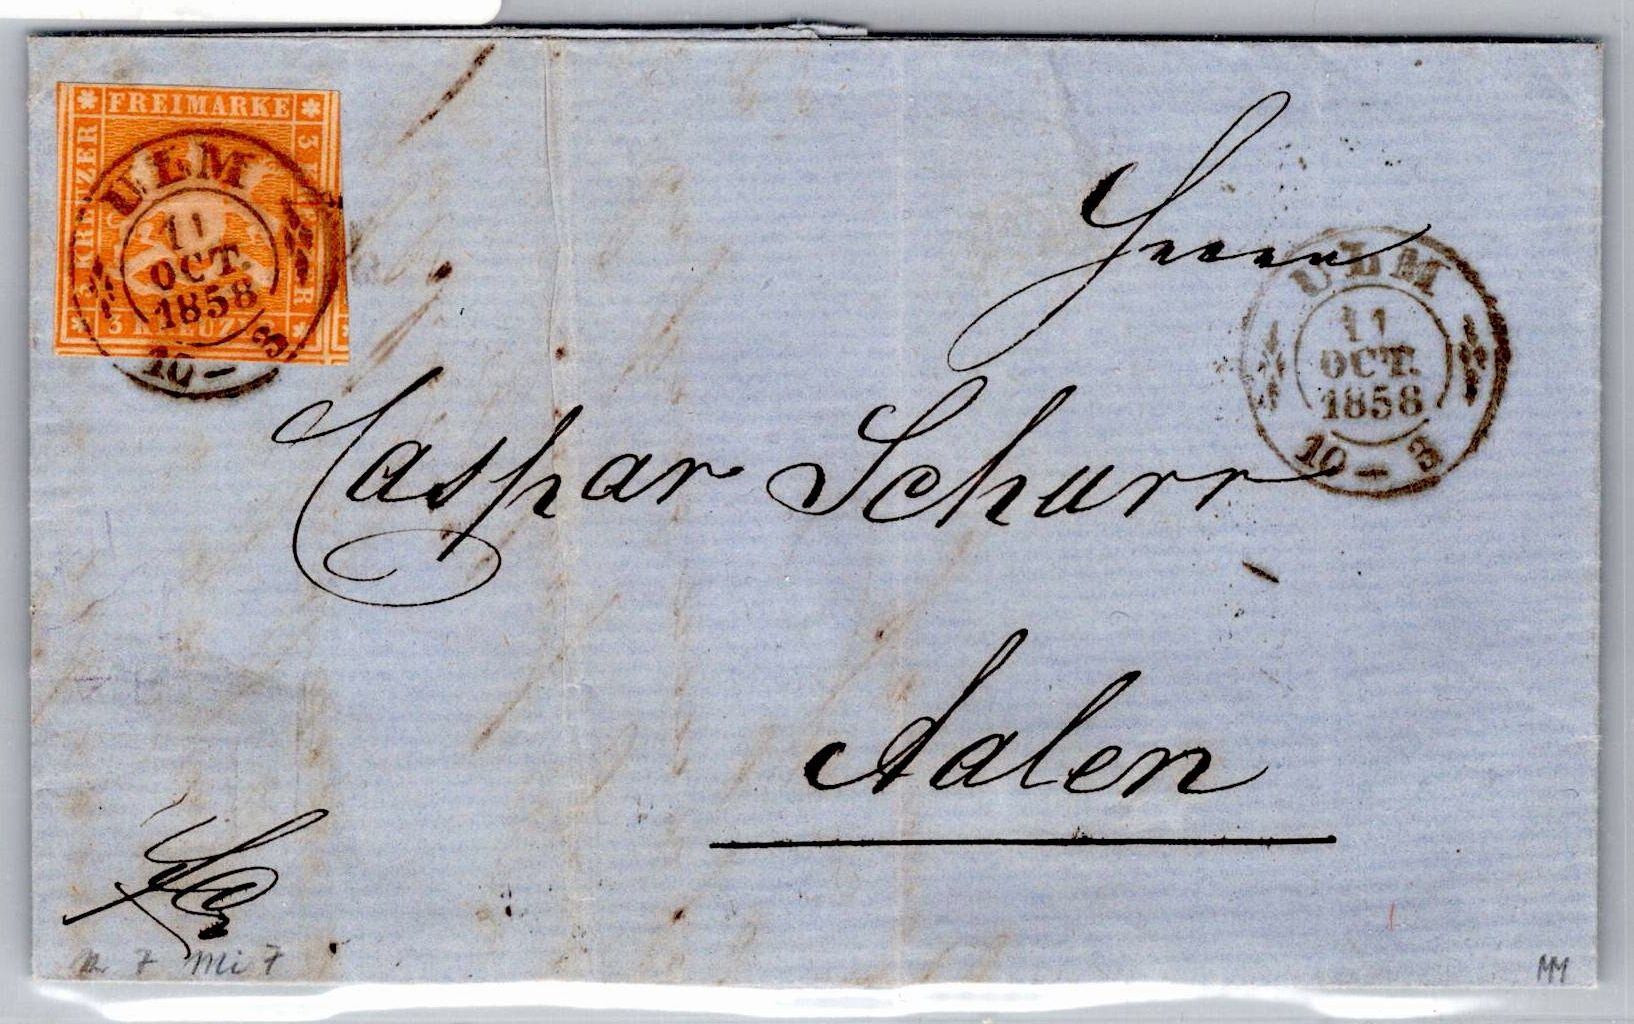 FREIMARKE
3 KREUZER
3 KREUZER
ULM
11
OCT.
1858
10 - 3
Herrn
ULM
11
OCT.
1858
10 - 3
Caspar Schurr
Aalen
7 Mi 7